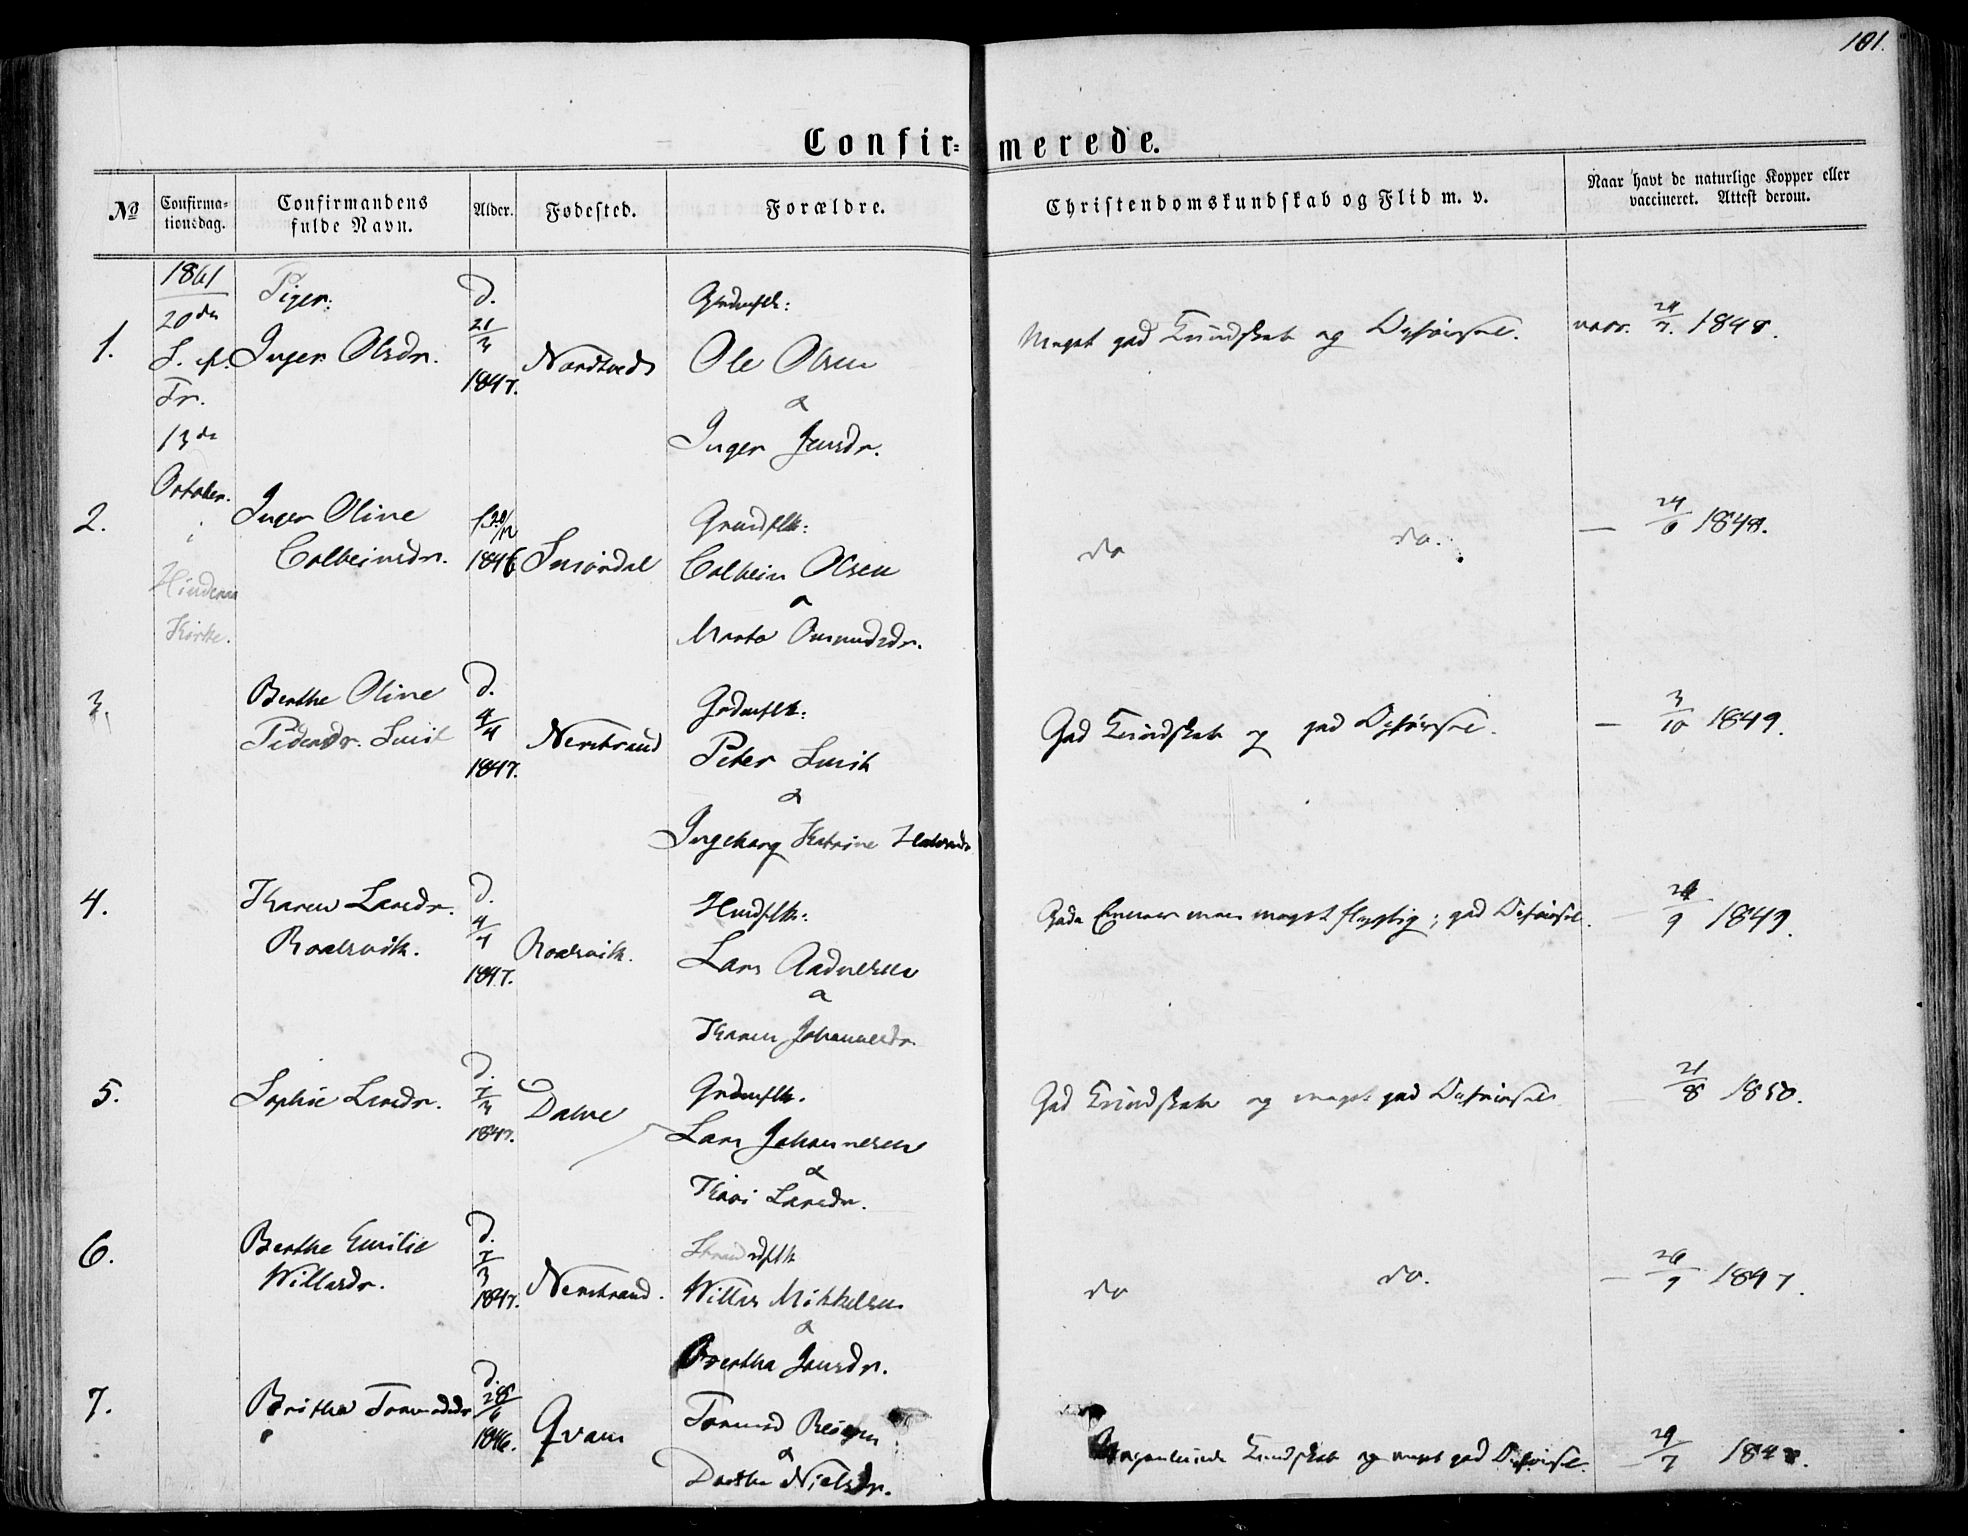 181.
Confir= merede.
№ Confirma-tionsdag. Confirmandens fulde Navn. Alder. Fødested. Forældre. Christendomskundskab og Flid m. v. Naar havt de naturlige Kopper eller vaccineret. Attest derom.
1861 Piger:
20de S. ef. Tr. 13de October. i Hinderaa Kirke.
1. Inger Olsdr. D. 21/3 1847. Nordtvedt
Ole Olsen
&
Inger Jensdr.
Meget god Kundskab og Opførsel. vacc. 24/7. 1848.
2. Inger Oline
Colbeinsdr. f. 20/12 1846 Smørdal
Grundflk:
Colbein Olsen
&
Marta Osmundsdr.
do do. — 24/6 1848.
3. Berthe Oline
Pedersdr. Smit D. 4/4 1847. Nerstrand
Peter Smith
&
Ingeborg Katrine
God Kundskab og god Opførsel. — 3/10 1849.
4. Karen Larsdr.
Roalsvik. D. 4/4 1847. Roalsvik.
Lars Aadnesen
&
Karen Johannesdr.
Gode Evner men meget flygtig; god Opførsel. — 24/9 1849.
5. Sophie Larsdr. D. 7/3 1847. Dalve
Lars Johannesen
&
Kari Larsdr.
God Kundskab og meget god Opførsel 21/8 1850.
6. Berthe Emilie
Willasdr. D. 7/3 1847. Nerstrand.
Strandsflk
Willas Mikkelsen
&
Bertha Jensdr.
do do. — 26/9 1847.
7. Britha Tormodsdr D. 28/6 1846. Qvam
Tormod
&
Dorthe Nielsdr.
Kundskab og meget god Opførsel. — 29/7 1848.